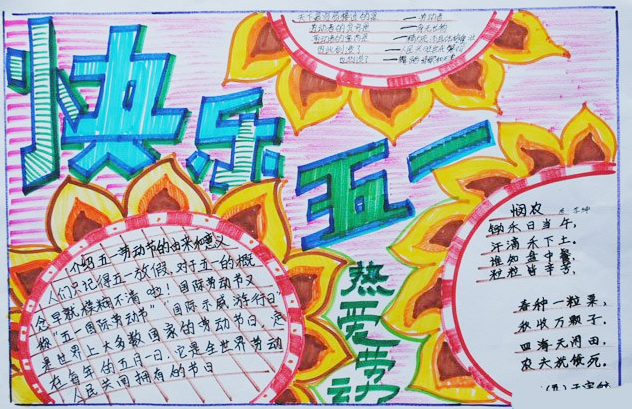 快乐五一
介绍五一劳动节的由来和意义
人们只记得五一放假,对于五一的概
念早就模糊不清啦!国际劳动节又
称"五一国际劳动节""国际示威游行日"
是世界上大多数国家的劳动节日,定
在每年的五月一日,它是全世界劳动
人民共同拥有的节日
热爱劳动
悯农
锄禾日当午,
汗滴禾下土。
谁知盘中餐,
粒粒皆辛苦,
春种一粒粟,
秋收万颗子。
四海无闲田,
农夫犹饿死。